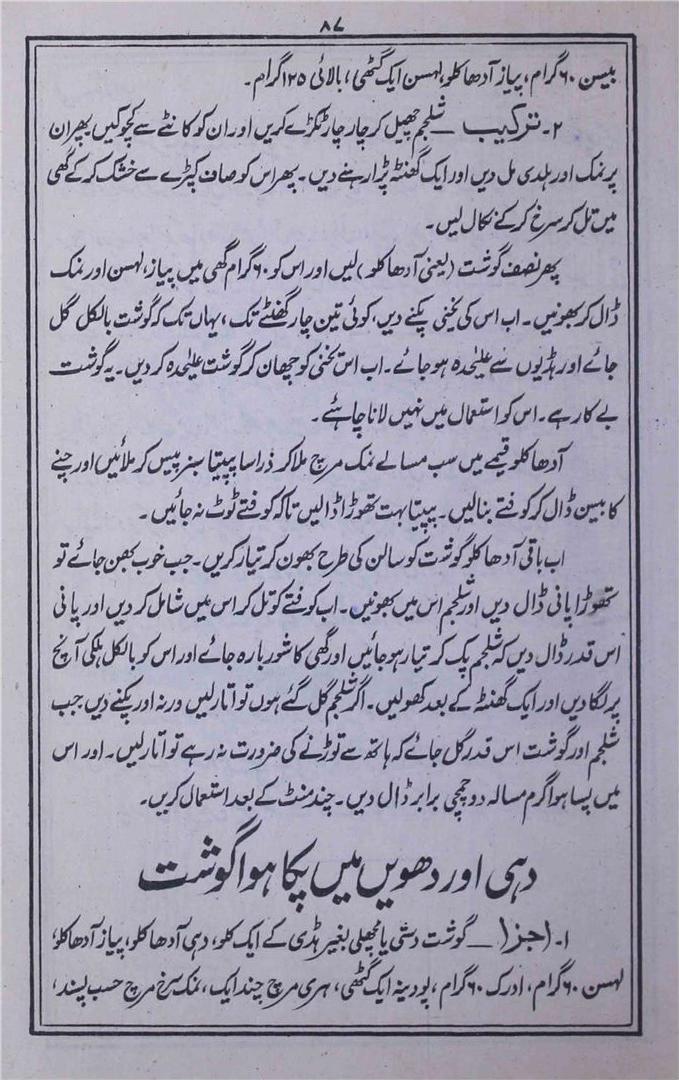 ۸۷
بیسن ۶۰ گرام، پیاز آدھا کلو، لہسن ایک گٹھی، بالائی ۱۲۵ گرام۔
۲۔ ترکیب — شلجم چھیل کر چار چار ٹکڑے کریں اور ان کو کانٹے سے کچوکیں پھر ان
پر نمک اور ہلدی مل دیں اور ایک گھنٹہ پڑا رہنے دیں۔ پھر اس کو صاف کپڑے سے خشک کر کے گھی
میں تل کر سرخ کر کے نکال لیں۔
پھر نصف گوشت (یعنی آدھا کلو) لیں اور اس کو ۶۰ گرام گھی میں پیاز، لہسن اور نمک
ڈال کر بھونیں۔ اب اس کی یخنی پکنے دیں، کوئی تین چار گھنٹے تک، یہاں تک کہ گوشت بالکل گل
جائے اور ہڈیوں سے علیٰحدہ ہو جائے۔ اب اس یخنی کو چھان کر گوشت علیٰحدہ کر دیں۔ یہ گوشت
بے کار ہے۔ اس کو استعمال میں نہیں لانا چاہئے۔
آدھا کلو قیمے میں سب مسالے نمک مرچ ملا کر ذرا سا پپیتا سبز پیس کر ملائیں اور چنے
کا بیسن ڈال کر کوفتے بنا لیں۔ پپیتا بہت تھوڑا ڈالیں تاکہ کوفتے ٹوٹ نہ جائیں۔
اب باقی آدھا کلو گوشت کو سالن کی طرح بھون کر تیار کریں۔ جب خوب بھن جائے تو
تھوڑا پانی ڈال دیں اور شلجم اس میں بھونیں۔ اب کوفتے کو تل کر اس میں شامل کر دیں اور پانی
اس قدر ڈال دیں کہ شلجم پک کر تیار ہو جائیں اور گھی کا شوربا رہ جائے اور اس کو بالکل ہلکی آنچ
پر لگا دیں اور ایک گھنٹہ کے بعد کھولیں۔ اگر شلجم گل گئے ہوں تو اتار لیں ورنہ اور پکنے دیں جب
شلجم اور گوشت اس قدر گل جائے کہ ہاتھ سے توڑنے کی ضرورت نہ رہے تو اتار لیں۔ اور اس
میں پسا ہوا گرم مسالہ دو چمچی برابر ڈال دیں۔ چند منٹ کے بعد استعمال کریں۔
دہی اور دھویں میں پکا ہوا گوشت
۱۔ اجزا — گوشت دستی یا مچھلی بغیر ہڈی کے ایک کلو، دہی آدھا کلو، پیاز آدھا کلو،
لہسن ۶۰ گرام، ادرک ۶۰ گرام، پودینہ ایک گٹھی، ہری مرچ چند ایک، نمک سرخ مرچ حسب پسند،